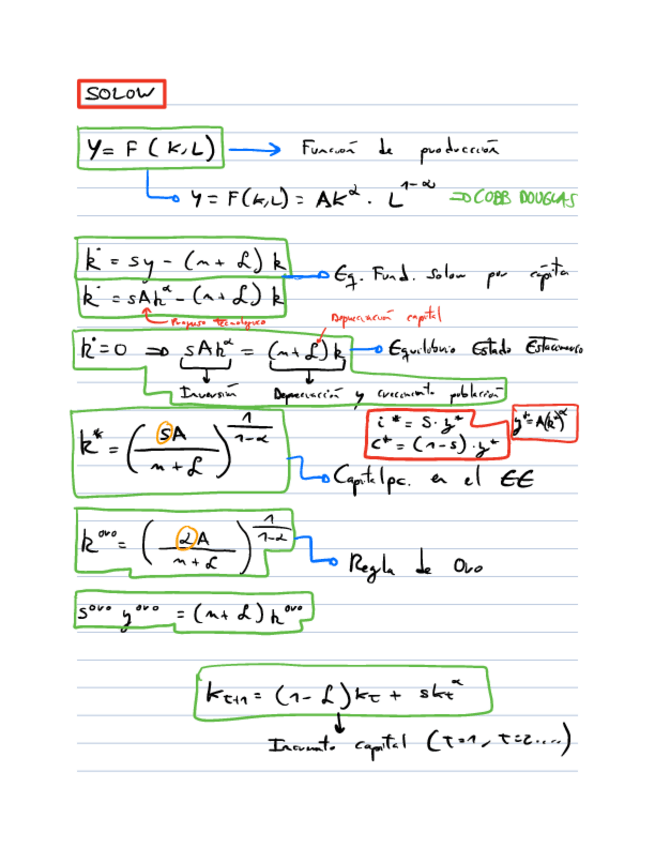 SOLOW
Y = F (K,L) → Función de producción
Y = F(K,L) = AK^α · L^(1-α) ⇒ COBB DOUGLAS
k̇ = sy - (n + δ) k
k̇ = sAk^α - (n + δ) k
Eq. Fund. Solow per cápita
Progreso tecnológico
Depreciación capital
k̇ = 0 ⇒ sAk^α = (n + δ) k Equilibrio Estado Estacionario
Inversión Depreciación y crecimiento población
i* = s · y*
c* = (1-s) · y*
y* = A(k*)^α
k* = (sA / n + δ)^(1/1-α)
Capital pc. en el EE
k^oro = (αA / n + δ)^(1/1-α)
Regla de Oro
s^oro y^oro = (n + δ) k^oro
k_t+1 = (1 - δ) k_t + sk_t^α
Incremento capital (t=1, t=2.....)